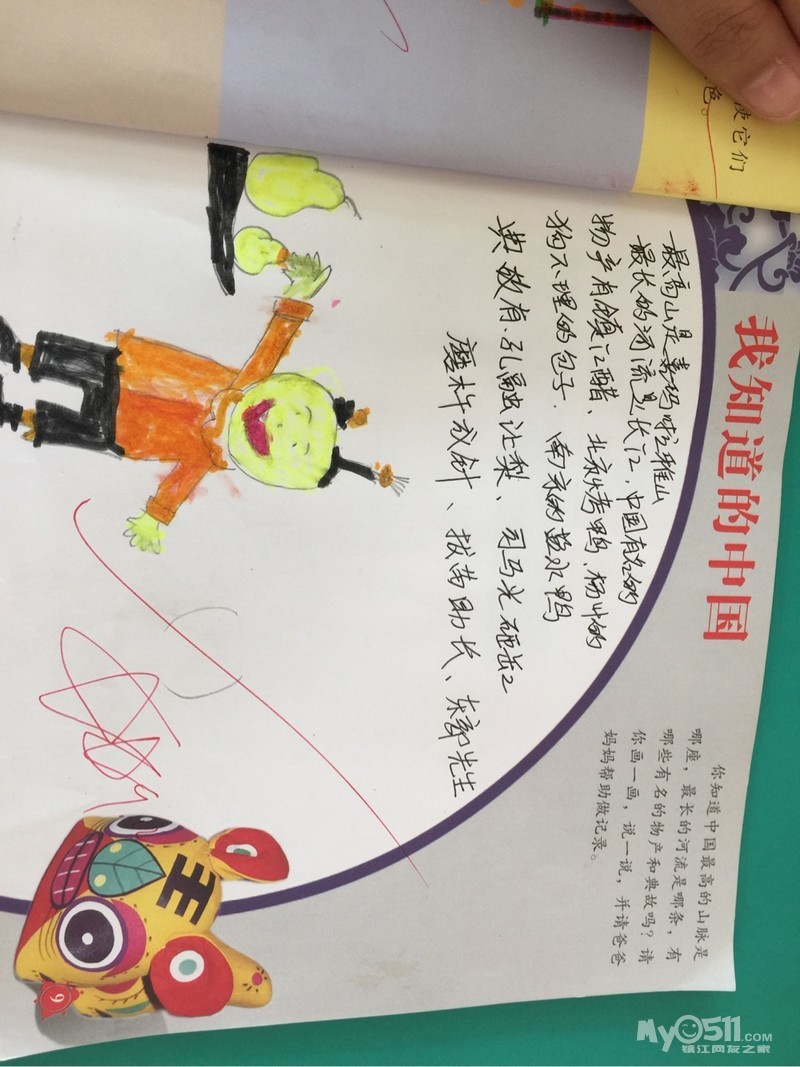 使它们
色。
我知道的中国
你知道中国最高的山脉是
哪座，最长的河流是哪条，有
哪些有名的物产和典故吗？请
你画一画，说一说，并请爸爸
妈妈帮助做记录。
最高山是喜玛啦雅山
最长的河流是长江，中国有名的
物产有镇江醋、北京烤鸭、扬州的
狗不理的包子、南京的盐水鸭
典故有：孔融让梨、司马光砸缸
磨杵成针、拔苗助长、东郭先生
王
9
MyO511.COM
镇江网友之家